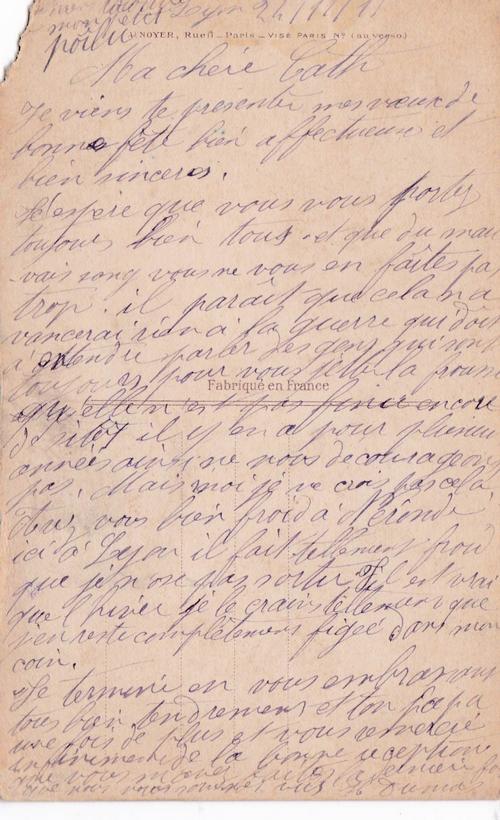 mon petit Lyon 24/11/17
poilu
NOYER, Rueil - Paris - VISÉ PARIS N° (au verso.)
Ma chère Cath
Je viens te présenter mes vœux de
bonne fête bien affectueux et
bien sincères.
J'espère que vous vous portez
toujours bien tous et que du mau
-vais sang vous ne vous en faites pa
trop. il paraît que cela n'a
vancerai rien à la guerre qui dois
entendre parler des gens qui sont
toujours pour vous
Fabriqué en France
qu'elle n'est pas finie encore
il y en a pour plusieu
années ainsi ne nous decourageons
pas. Mais moi je ne crois pas cela
vous bien froid à
ici à Lyon il fait tellement froid
que je n'ose pas sortir. Il est vrai
que l'hiver je le crains tellement que
j'en reste complètement figée dans mon
coin.
Je termine en vous embrassant
tous bien tendrement et ton papa
une fois de plus et vous remercie
infiniment de la bonne réception
que vous m'avez faites la dernière fo
que nous vous sommes